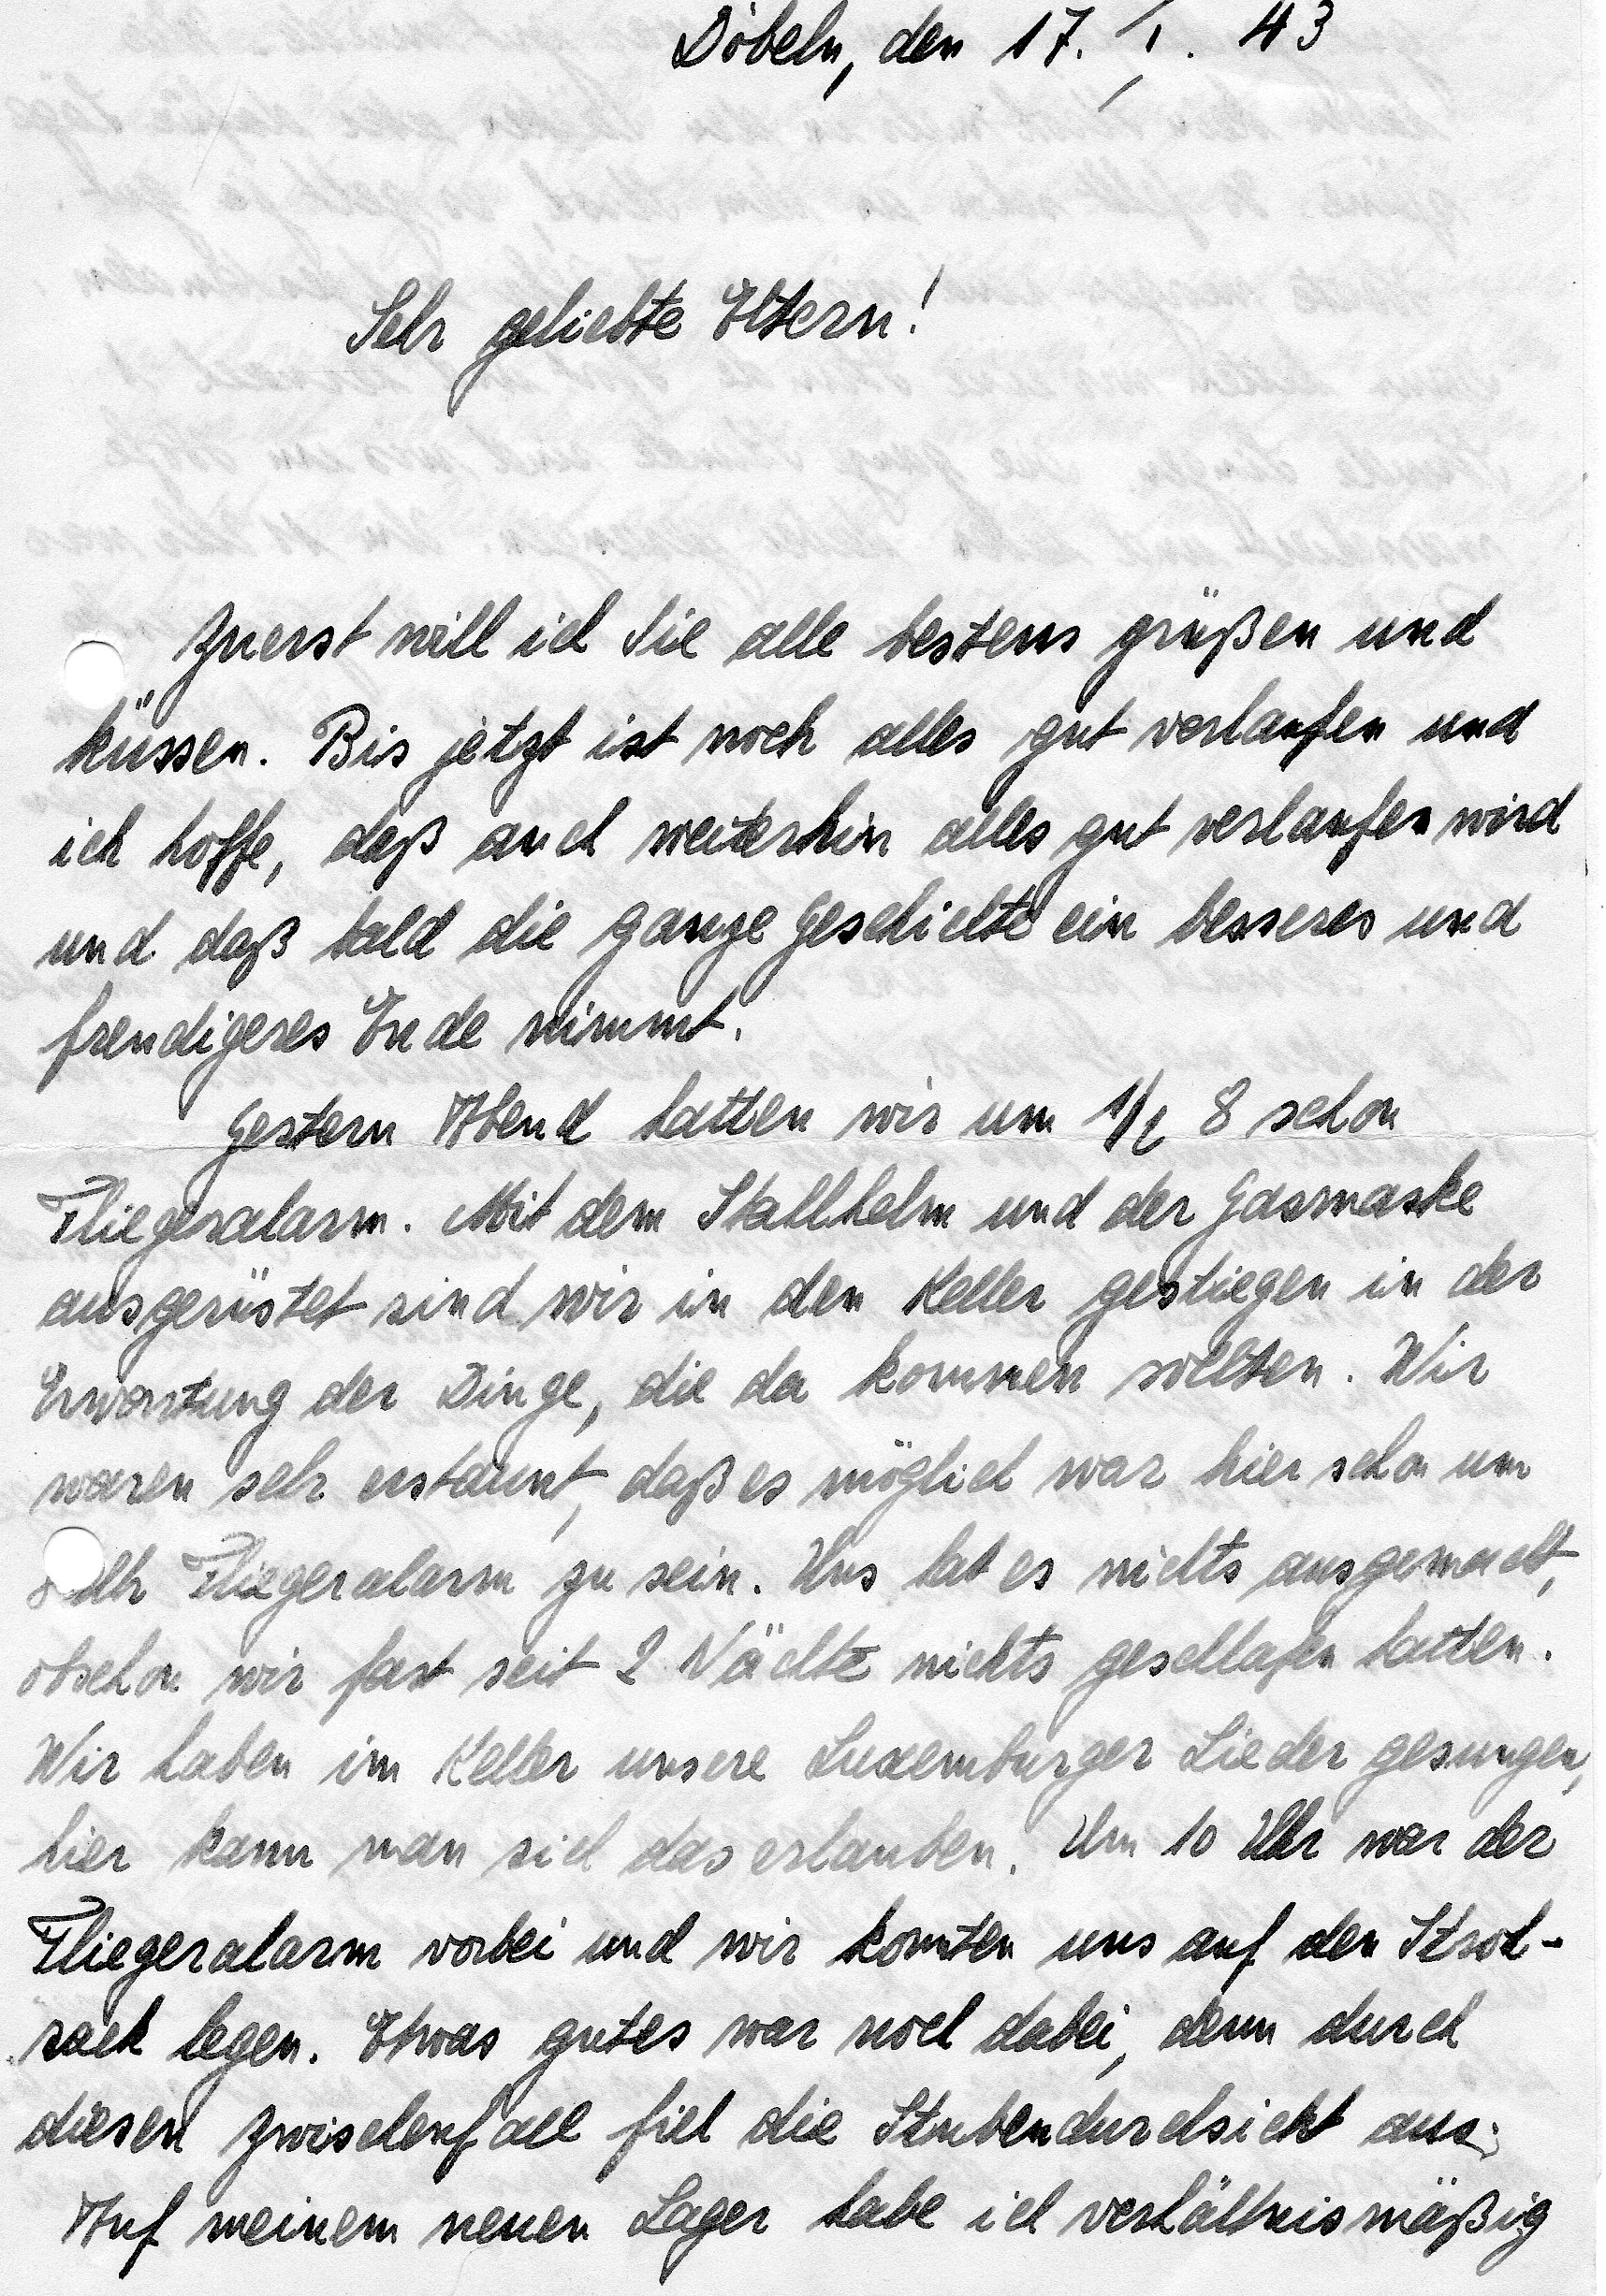 Döbeln, den 17. / I. 43
Sehr geliebte Eltern!
Zuerst will ich Sie alle bestens grüßen und
küssen. Bis jetzt ist noch alles gut verlaufen und
ich hoffe, daß auch weiterhin alles gut verlaufen wird
und daß bald die ganze Geschichte ein besseres und
freudigeres Ende nimmt.
Gestern Abend hatten wir um 1/2 8 schon
Fliegeralarm. Mit dem Stahlhelm und der Gasmaske
ausgerüstet sind wir in den Keller gestiegen in der
Erwartung der Dinge, die da kommen sollten. Wir
waren sehr erstaunt, daß es möglich war hier schon um
Uhr Fliegeralarm zu sein. Uns hat es nichts ausgemacht,
obschon wir fast seit 2 Nächte nichts geschlafen hatten.
Wir haben im Keller unsere Luxemburger Lieder gesungen,
hier kann man sich das erlauben. Um 10 Uhr war der
Fliegeralarm vorbei und wir konnten uns auf den Stroh-
sack legen. Etwas gutes war noch dabei, denn durch
diesen Zwischenfall fiel die Stubendurchsicht aus.
Auf meinem neuen Lager habe ich verhältnismäßig